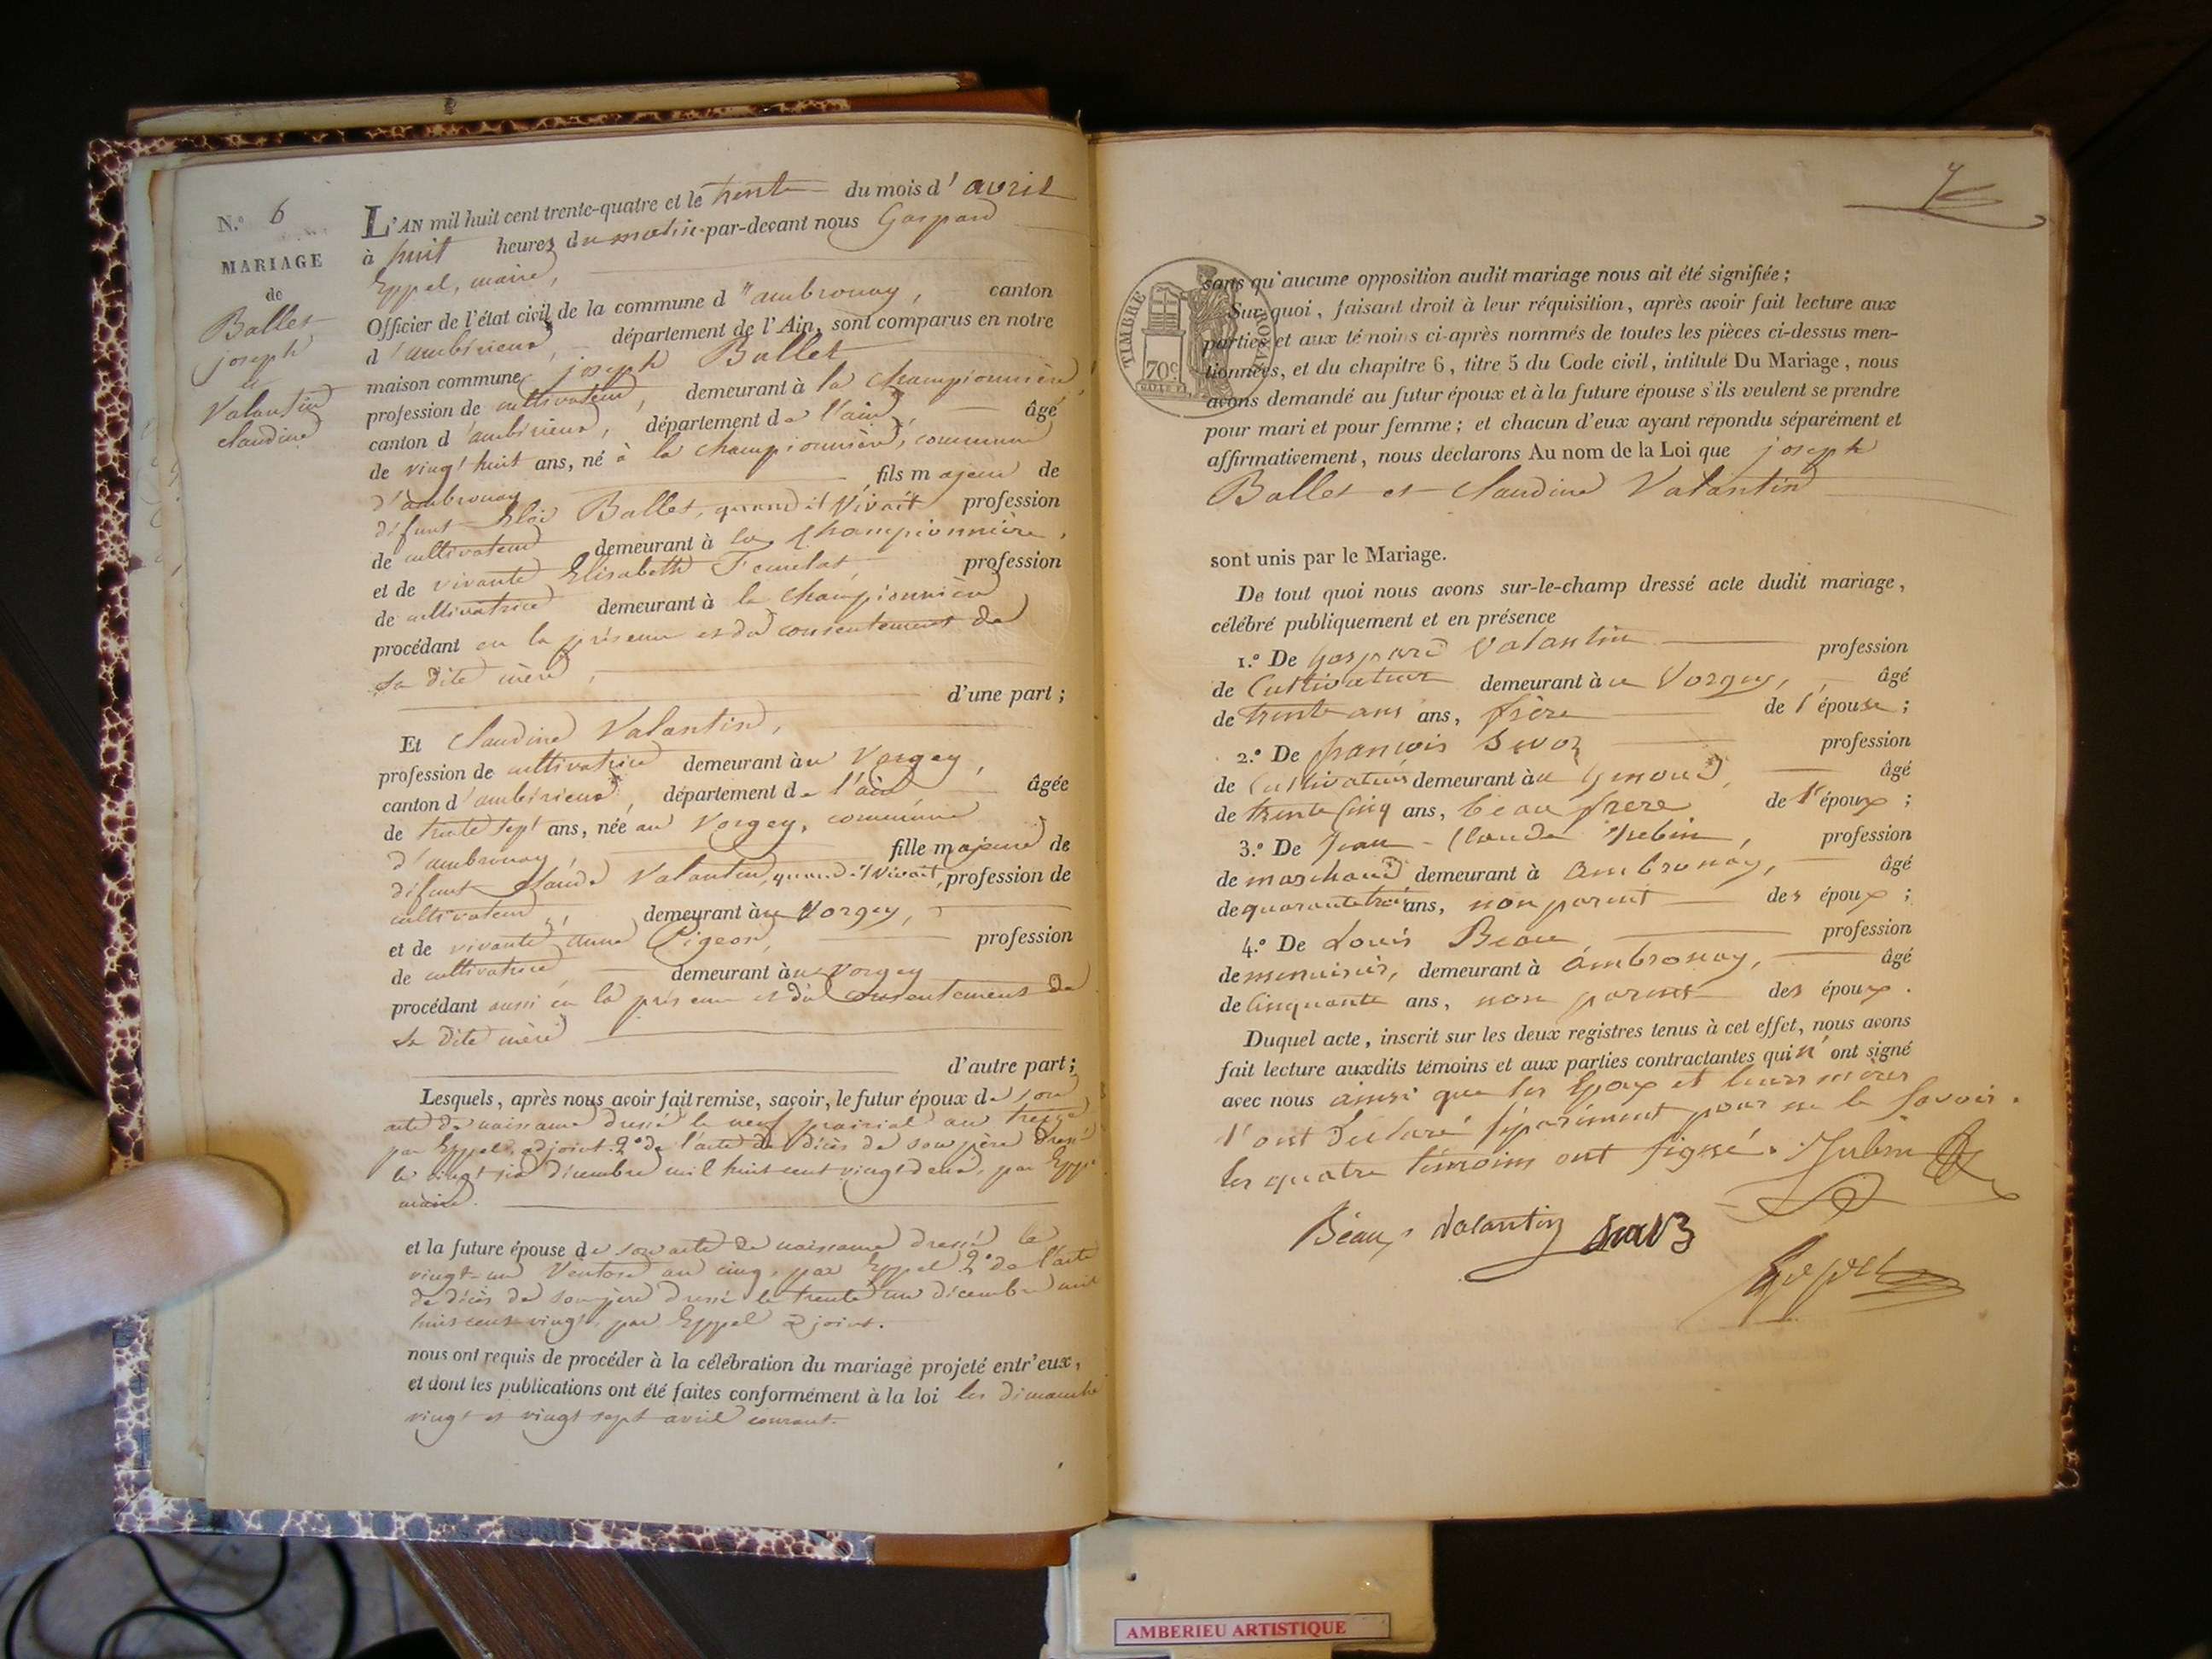 N.º 6
MARIAGE
de
Ballet
joseph
et
Valantin
claudine
L'AN mil huit cent trente-quatre et le trente du mois d' avril
à huit heures du matin par-devant nous Gaspard
Eppel, maire,
Officier de l'état civil de la commune d'ambronay, canton
d'ambérieux, département de l'Ain, sont comparus en notre
maison commune joseph Ballet
profession de cultivateur, demeurant à la championnière,
canton d'ambérieux, département de l'ain, âgé
de vingt huit ans, né à la championnière, commune
d'ambronay fils majeur de
défunt Eloi Ballet, quand il vivait profession
de cultivateur demeurant à la championnière,
et de vivante Elisabeth profession
de cultivatrice demeurant à la championnière
procédant en la présence et du consentement de
sa dite mère,
d'une part ;
Et Claudine Valantin,
profession de cultivatrice demeurant au Vorgey,
canton d'ambérieux, département de l'ain âgée
de trente sept ans, née au Vorgey, commune
d'ambronay, fille majeure de
défunt claude Valantin, quand il vivait, profession de
cultivateur, demeurant au Vorgey,
et de vivante anne Pigeon, profession
de cultivatrice demeurant au Vorgey
procédant aussi en la présence et du consentement de
sa dite mère
d'autre part ;
Lesquels, après nous avoir fait remise, savoir, le futur époux de son
acte de naissance dressé le neuf prairial an treize
par Eppel, adjoint. 2º de l'acte de décès de son père dressé
le vingt six décembre mil huit cent vingt deux, par Eppel
maire.
et la future épouse de son acte de naissance dressé le
vingt-un Ventose an cinq, par Eppel 2º de l'acte
de décès de son père dressé le trente un décembre mil
huit cent vingt, par Eppel adjoint.
nous ont requis de procéder à la célébration du mariage projeté entr'eux,
et dont les publications ont été faites conformément à la loi les dimanche
vingt et vingt sept avril courant.
7
TIMBRE ROYAL
70c
sans qu'aucune opposition audit mariage nous ait été signifiée ;
Sur quoi, faisant droit à leur réquisition, après avoir fait lecture aux
parties et aux témoins ci-après nommés de toutes les pièces ci-dessus men-
tionnées, et du chapitre 6, titre 5 du Code civil, intitulé Du Mariage, nous
avons demandé au futur époux et à la future épouse s'ils veulent se prendre
pour mari et pour femme ; et chacun d'eux ayant répondu séparément et
affirmativement, nous déclarons Au nom de la Loi que joseph
Ballet et Claudine Valantin
sont unis par le Mariage.
De tout quoi nous avons sur-le-champ dressé acte dudit mariage,
célébré publiquement et en présence
1.º De Gaspard Valantin profession
de Cultivateur demeurant au Vorgey, âgé
de trente ans ans, frère de l'épouse ;
2.º De françois profession
de Cultivateur demeurant au âgé
de trente cinq ans, beau frere de l'époux ;
3.º De Jean-Claude Jubin, profession
de marchand demeurant à Ambronay, âgé
de quarante trois ans, non parent des époux ;
4.º De Louis Beau profession
de menuisier, demeurant à ambronay, âgé
de Cinquante ans, non parent des époux.
Duquel acte, inscrit sur les deux registres tenus à cet effet, nous avons
fait lecture auxdits témoins et aux parties contractantes qui n'ont signé
avec nous ainsi que les Epoux et leurs mères
l'ont déclaré séparément pour ne le Savoir.
les quatre témoins ont signé. Jubin
Béau Valantin
Eppel
AMBERIEU ARTISTIQUE